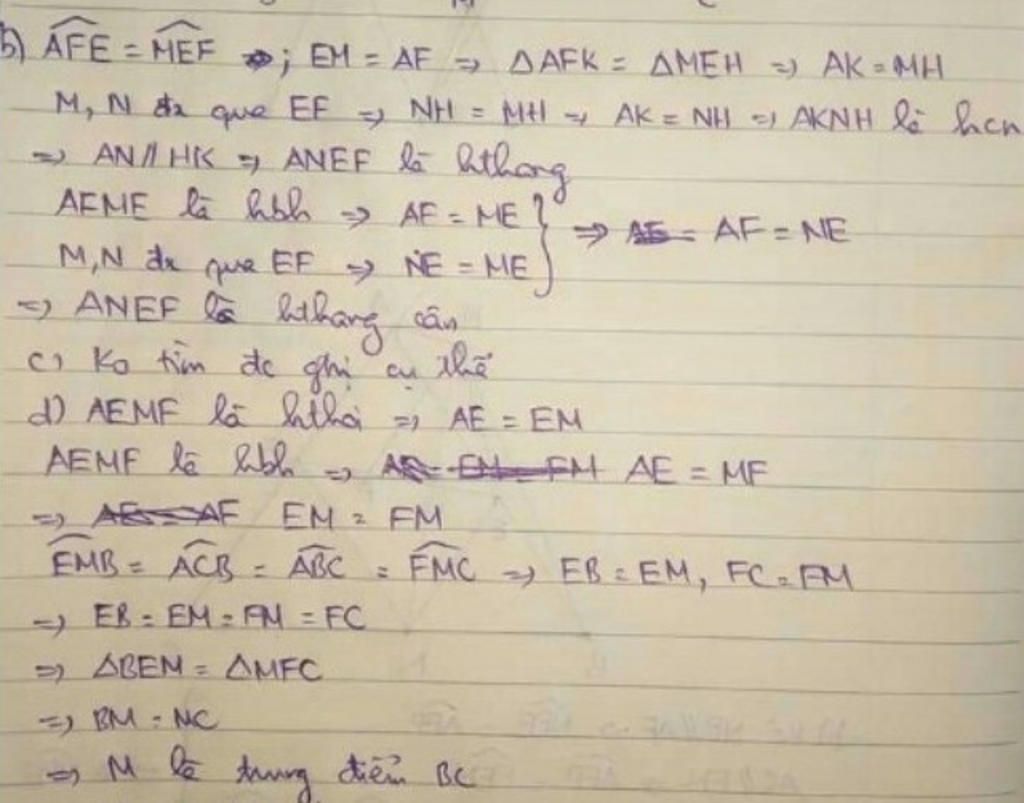 b) AFE = MEF ; EM = AF => ΔAFK = ΔMEH => AK = MH
M, N đx qua EF => NH = MH => AK = NH => AKNH là hcn
=> AN // HK => ANEF là hthang
AEME là hbh => AF = ME } => AF = NE
M,N đx qua EF => NE = ME
=> ANEF là hthang cân
c) Ko tìm đc ghị cụ thể
d) AEMF là hthoi => AE = EM
AEMF là hbh => AE = MF
=> EM = FM
EMB = ACB = ABC = FMC => EB = EM, FC = FM
=> EB = EM = FM = FC
=> ΔBEM = ΔMFC
=> BM = NC
=> M là trung điểm BC